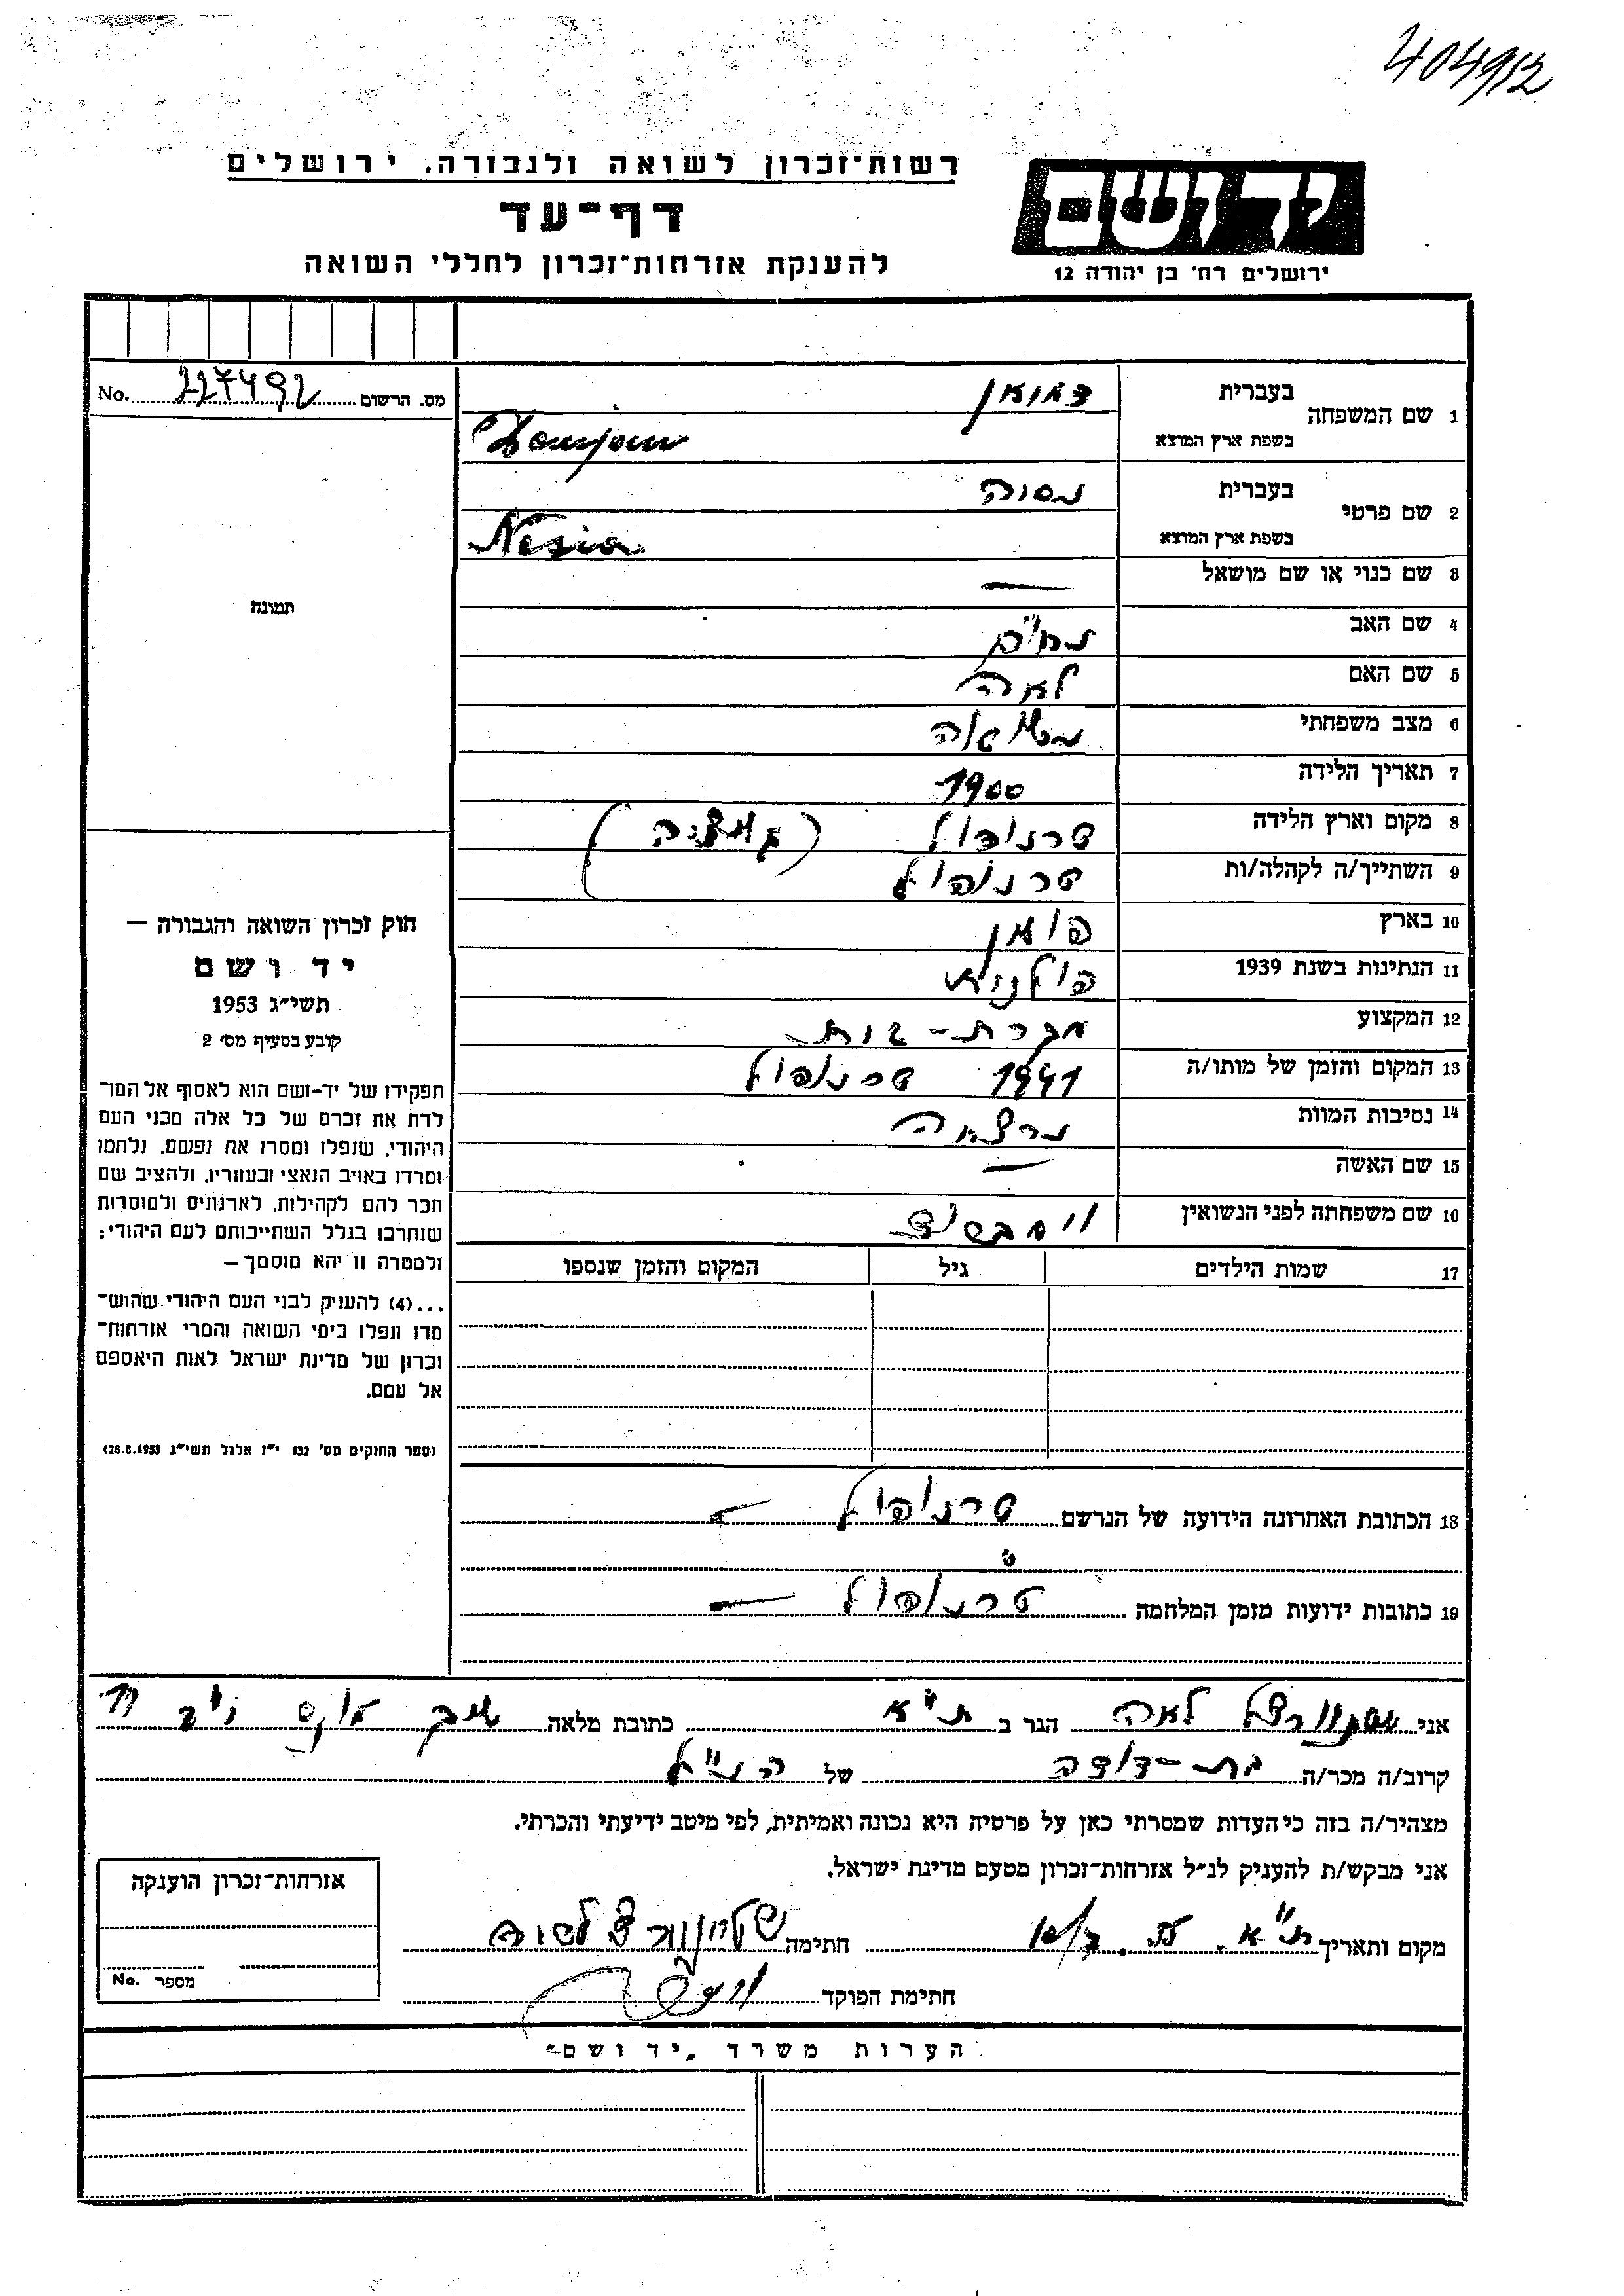 404912
רשות־זכרון לשואה ולגבורה. ירושלים
דף־עד
להענקת אזרחות־זכרון לחללי השואה
יד ושם
ירושלים רח' בן יהודה 12
מס. הרשום 227492 No.
תמונה
1 שם המשפחה
בעברית
בשפת ארץ המוצא
2 שם פרטי
בעברית נסיה
בשפת ארץ המוצא Nesia
3 שם כנוי או שם מושאל —
4 שם האב נחום
5 שם האם לאה
6 מצב משפחתי נשואה
7 תאריך הלידה 1900
8 מקום וארץ הלידה טרנופול (גליציה)
9 השתייך/ה לקהלה/ות טרנופול
10 בארץ פולין
11 הנתינות בשנת 1939 פולנית
12 המקצוע עקרת-בית
13 המקום והזמן של מותו/ה 1941 טרנופול
14 נסיבות המוות נרצחה
15 שם האשה —
16 שם משפחתה לפני הנשואין
17 שמות הילדים גיל המקום והזמן שנספו
18 הכתובת האחרונה הידועה של הנרשם טרנופול —
19 כתובות ידועות מזמן המלחמה טרנופול —
חוק זכרון השואה והגבורה —
יד ושם
תשי״ג 1953
קובע בסעיף מס׳ 2
תפקידו של יד-ושם הוא לאסוף אל המו־
לדת את זכרם של כל אלה מבני העם
היהודי, שנפלו ומסרו את נפשם, נלחמו
ומרדו באויב הנאצי ובעוזריו, ולהציב שם
וזכר להם לקהילות, לארגונים ולמוסדות
שנחרבו בגלל השתייכותם לעם היהודי;
ולמטרה זו יהא מוסמך —
...(4) להעניק לבני העם היהודי שהוש־
מדו ונפלו בימי השואה והמרי אזרחות־
זכרון של מדינת ישראל לאות היאספם
אל עמם.
(ספר החוקים מס׳ 132 י״ז אלול תשי״ג 28.8.1953)
אני לאה הגר ב ת"א כתובת מלאה
קרוב/ה מכר/ה בת-דודה של הנ"ל
מצהיר/ה בזה כי העדות שמסרתי כאן על פרטיה היא נכונה ואמיתית, לפי מיטב ידיעתי והכרתי.
אני מבקש/ת להעניק לנ״ל אזרחות־זכרון מטעם מדינת ישראל.
מקום ותאריך ת"א חתימה
חתימת הפוקד
אזרחות־זכרון הוענקה
מספר No.
הערות משרד „יד ושם״